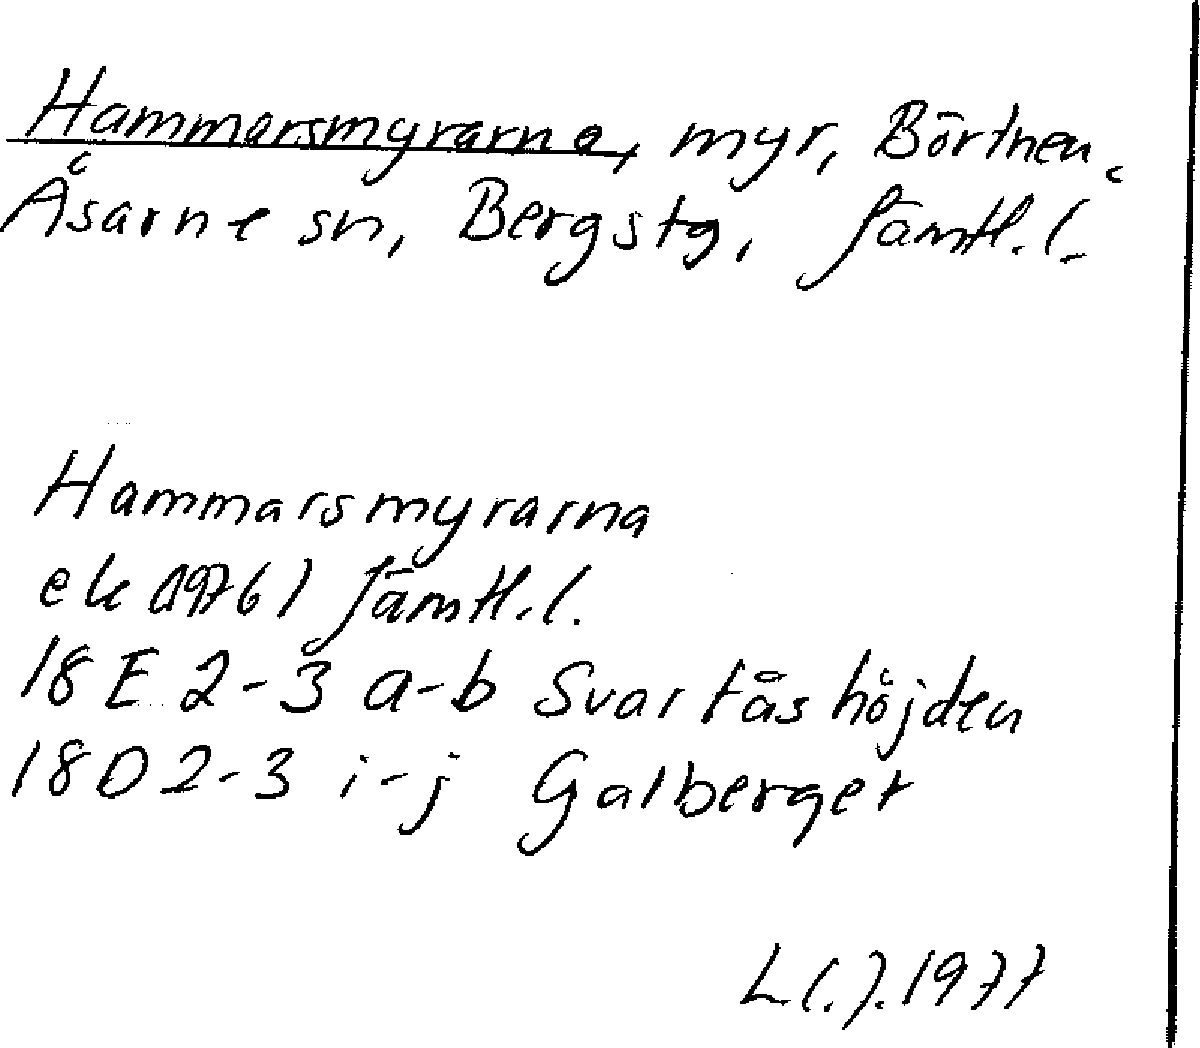 Hammarsmyrarna, myr, Börtnen,
Åsarne sn, Bergs tg, Jämtl. l.
Hammarsmyrarna
ek (1976) Jämtl. l.
18 E 2-3 a-b Svartåshöjden
18 D 2-3 i-j Galberget
1977